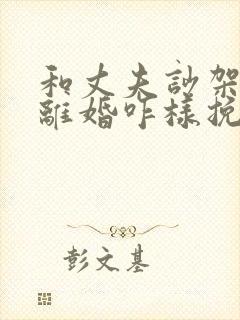 和丈夫訬架
離婚咋樣挽
彭文基